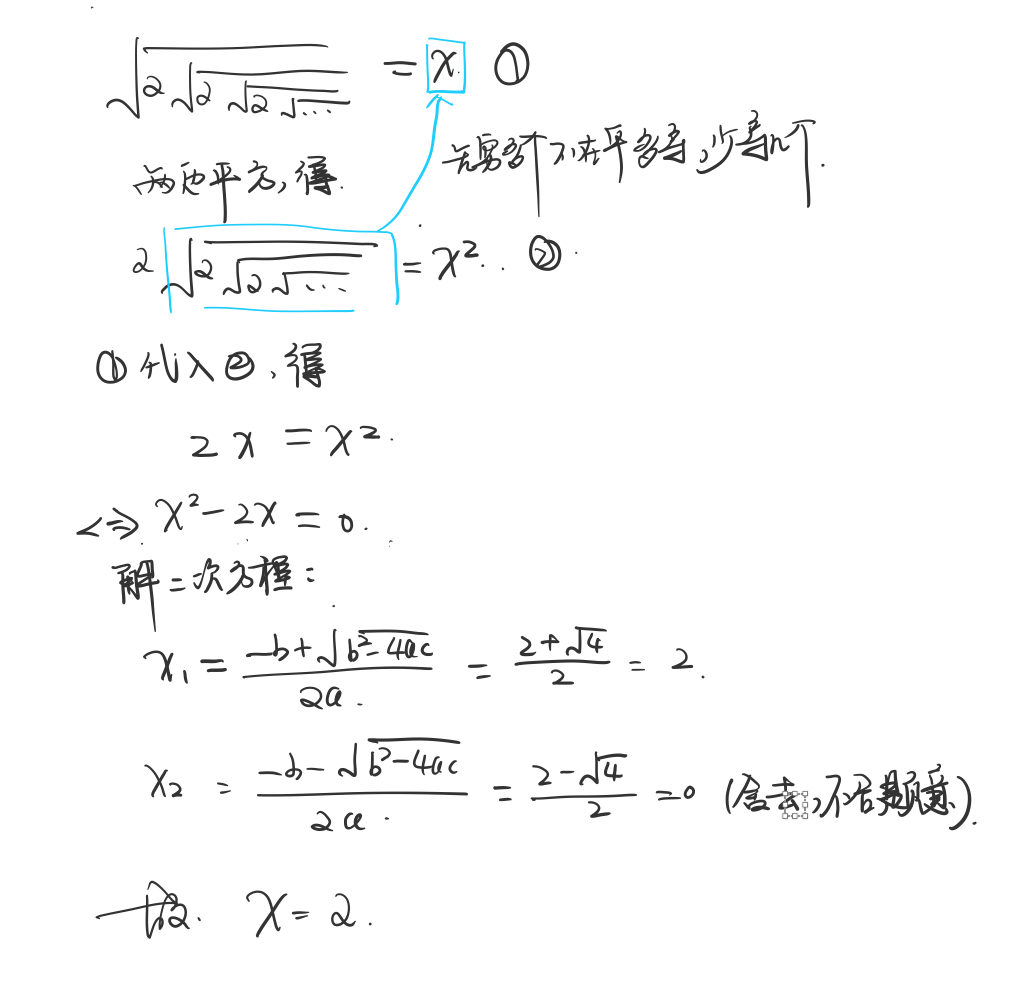 √(2√(2√(2√(···)))) = x ①
两边平方,得.
无穷多个不在乎多寡,少寡n个.
2√(2√(2√(···))) = x². ②
①代入②,得
2x = x².
<=> x² - 2x = 0.
解二次方程:
x₁ = (-b + √(b² - 4ac)) / 2a. = (2 + √4) / 2 = 2.
x₂ = (-b - √(b² - 4ac)) / 2a. = (2 - √4) / 2 = 0 (舍去,不合题意).
x = 2.